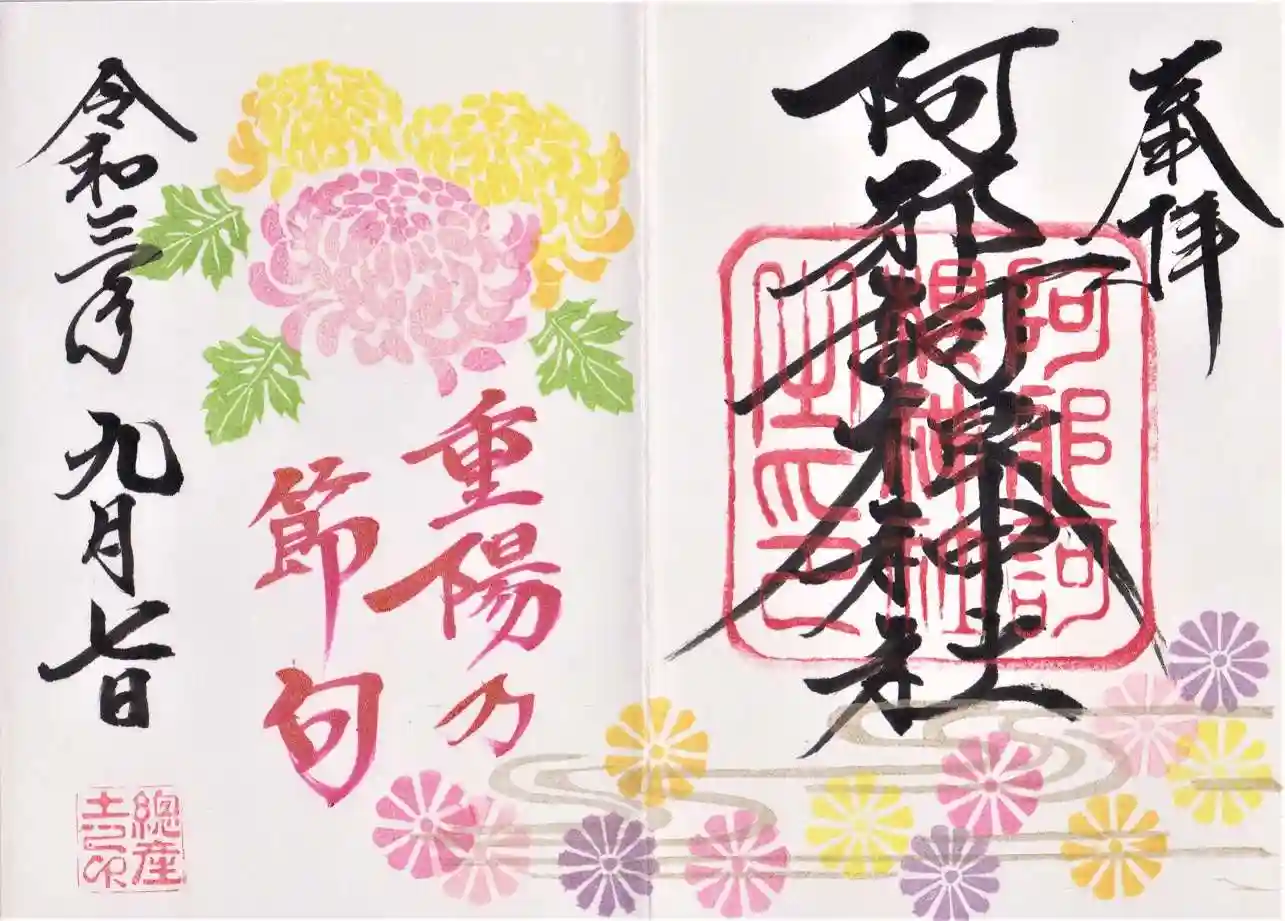 奉拝
阿邪訶根神社
阿邪訶
根神社
之印
重陽乃
節句
令和三年九月七日
總産
土印